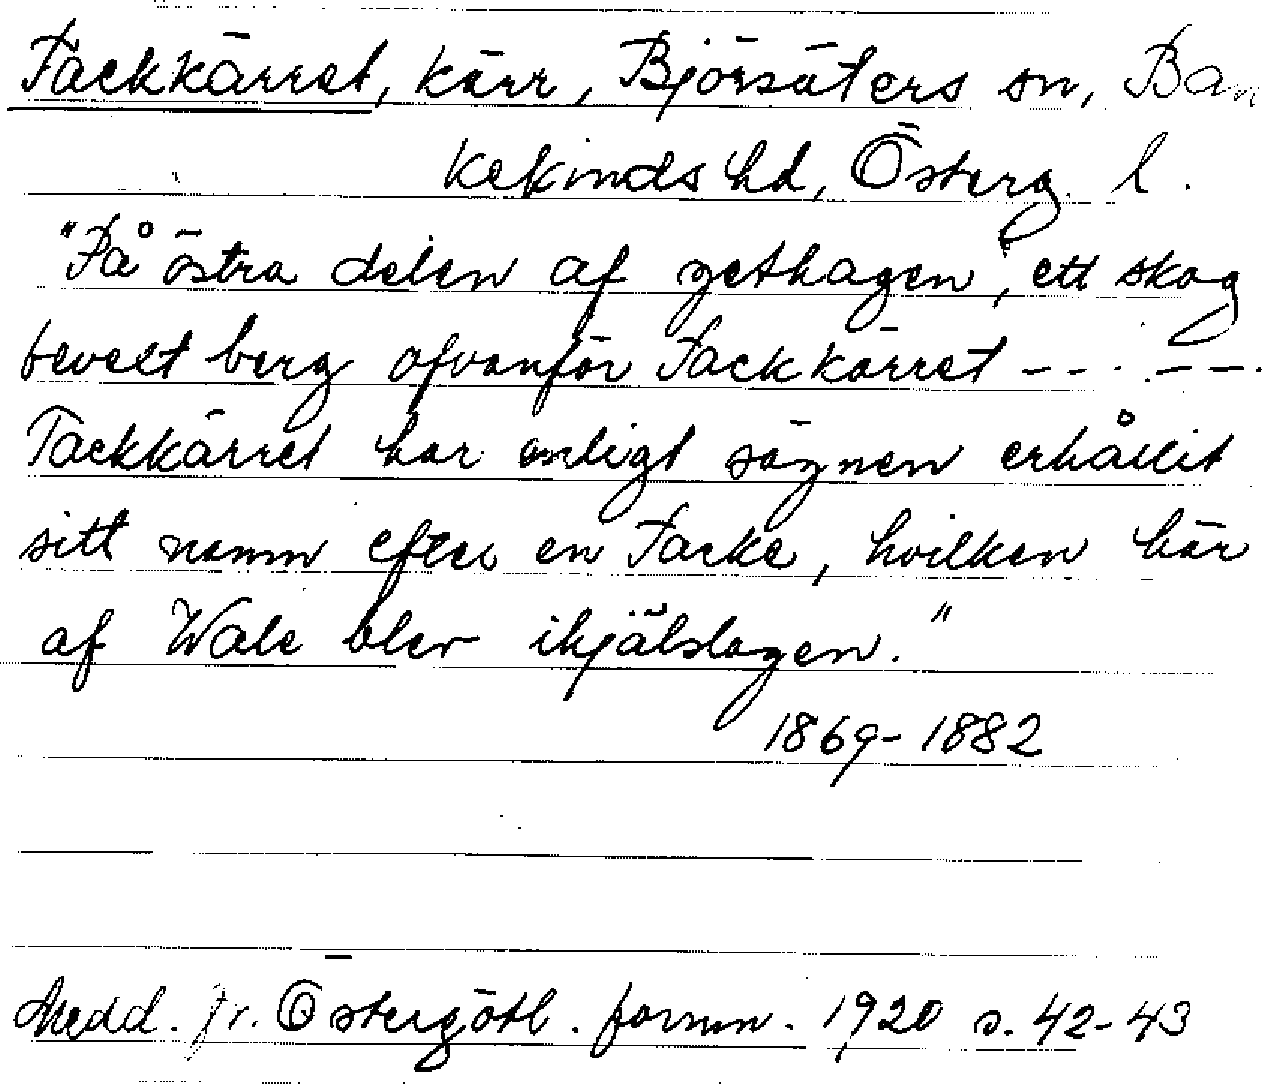 Täckkärret, kärr, Björsäters sn, Ban
kekinds hd, Österg. l.
"På östra delen af gethagen, ett skog
bevext berg ofvanför Täckkärret - - - - -
Täckkärret har enligt sägnen erhållit
sitt namn efter en Tacke, hvilken här
af Wale blev ihjälslagen."
1869-1882
Medd. fr. Östergötl. fornm. 1920 s. 42-43